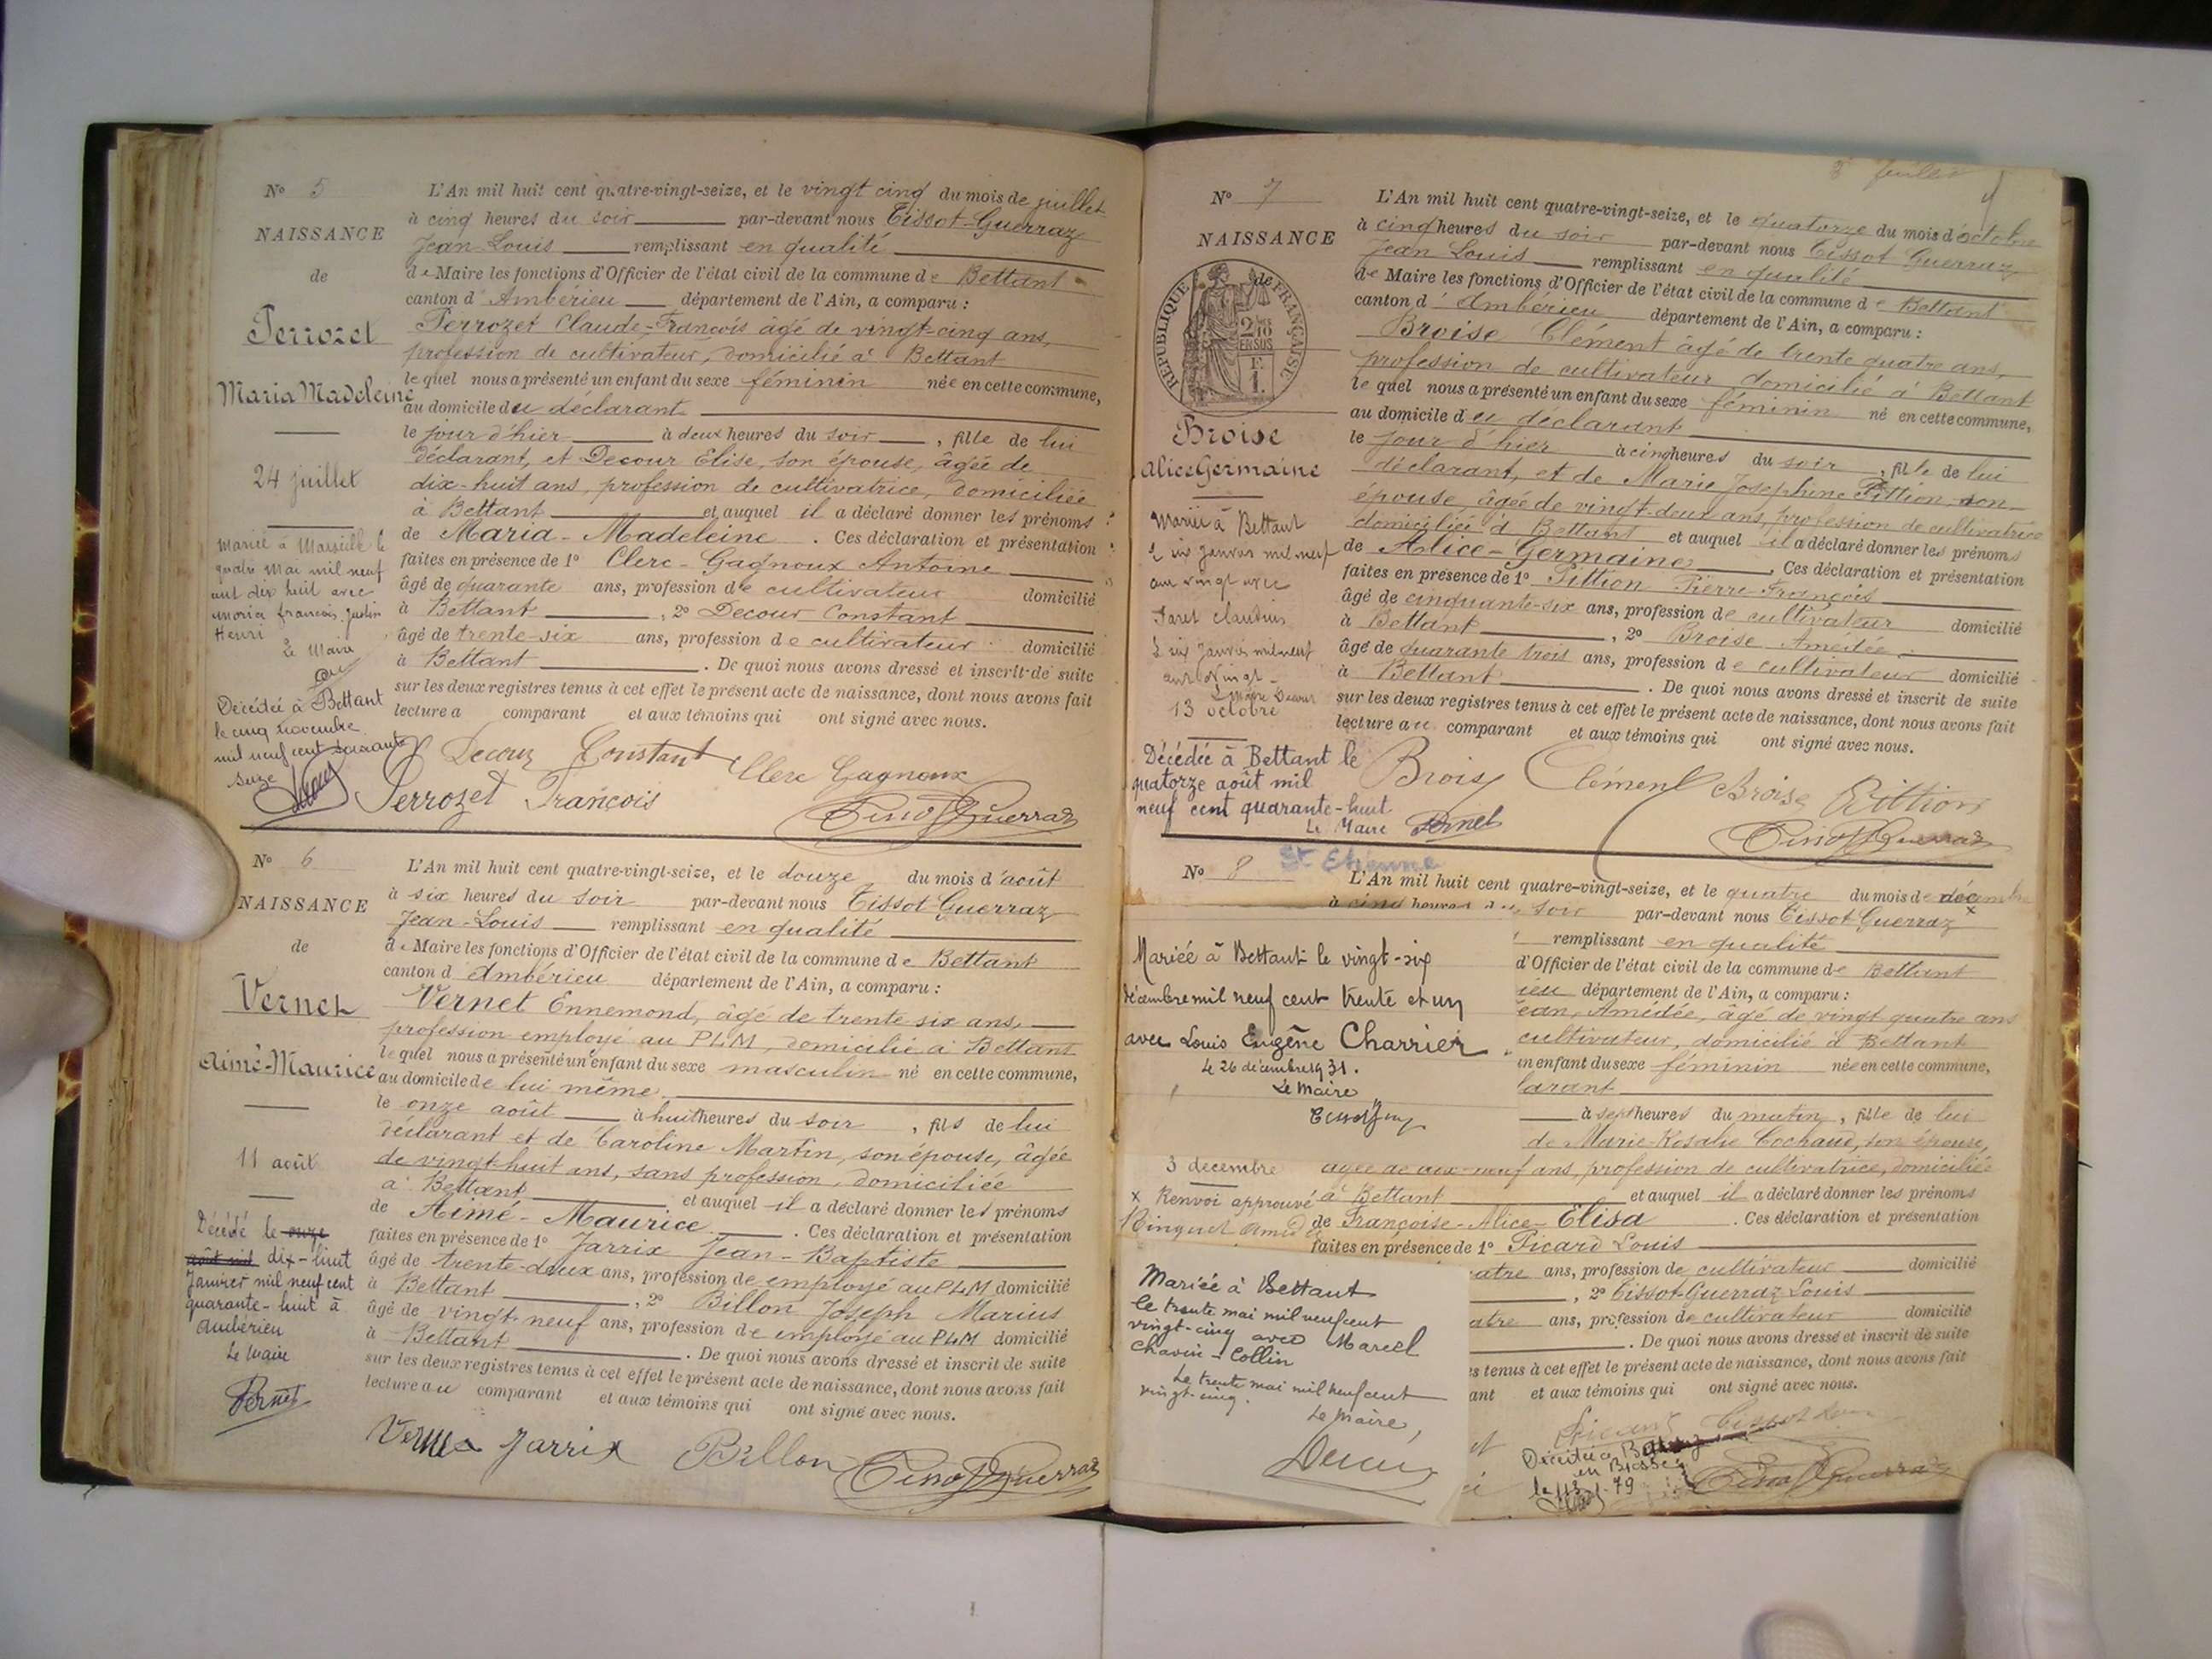 N° 5
NAISSANCE
de
Perrozet
Maria Madeleine
24 juillet
Mariée à Marseille le
quatre Mai mil neuf
cent dix huit avec
françois Justin
Henri
Le Maire
Décédée à Bettant
le cinq novembre
mil neuf cent soixante
seize
L'An mil huit cent quatre-vingt-seize, et le vingt cinq du mois de juillet
à cinq heures du soir par-devant nous Tissot-Guerraz
Jean-Louis remplissant en qualité
de Maire les fonctions d'Officier de l'état civil de la commune de Bettant
canton d'Ambérieu département de l'Ain, a comparu :
Perrozet Claude-François âgé de vingt-cinq ans,
profession de cultivateur, domicilié à Bettant
lequel nous a présenté un enfant du sexe féminin née en cette commune,
au domicile du déclarant
le jour d'hier à deux heures du soir, fille de lui
déclarant, et Decour Elise, son épouse, âgée de
dix-huit ans, profession de cultivatrice, domiciliée
à Bettant et auquel il a déclaré donner les prénoms
de Maria-Madeleine. Ces déclaration et présentation
faites en présence de 1° Clerc-Gagnoux Antoine
âgé de quarante ans, profession de cultivateur domicilié
à Bettant, 2° Decour Constant
âgé de trente-six ans, profession de cultivateur domicilié
à Bettant. De quoi nous avons dressé et inscrit de suite
sur les deux registres tenus à cet effet le présent acte de naissance, dont nous avons fait
lecture a comparant et aux témoins qui ont signé avec nous.
Decour Constant Clerc Gagnoux
Perrozet François Tissot Guerraz
N° 6
NAISSANCE
de
Vernet
Aimé-Maurice
11 août
Décédé le onze
août mil dix-huit
Janvier mil neuf cent
quarante-huit à
Ambérieu
Le Maire
Pernet
L'An mil huit cent quatre-vingt-seize, et le douze du mois d'août
à six heures du soir par-devant nous Tissot-Guerraz
Jean-Louis remplissant en qualité
de Maire les fonctions d'Officier de l'état civil de la commune de Bettant
canton d'Ambérieu département de l'Ain, a comparu :
Vernet Ennemond, âgé de trente six ans,
profession employé au PLM, domicilié à Bettant
lequel nous a présenté un enfant du sexe masculin né en cette commune,
au domicile de lui même
le onze août à huit heures du soir, fils de lui
déclarant et de Caroline Martin, son épouse, âgée
de vingt-huit ans, sans profession, domiciliée
à Bettant et auquel il a déclaré donner les prénoms
de Aimé-Maurice. Ces déclaration et présentation
faites en présence de 1° Jarrix Jean-Baptiste
âgé de trente-deux ans, profession de employé au PLM domicilié
à Bettant, 2° Billon Joseph Marius
âgé de vingt-neuf ans, profession de employé au PLM domicilié
à Bettant. De quoi nous avons dressé et inscrit de suite
sur les deux registres tenus à cet effet le présent acte de naissance, dont nous avons fait
lecture au comparant et aux témoins qui ont signé avec nous.
Vernet Jarrix Billon Tissot Guerraz
N° 7
NAISSANCE
de
RÉPUBLIQUE FRANÇAISE
2/10
EN SUS
F.
1.
Broise
Alice Germaine
Mariée à Bettant
le six Janvier mil neuf
cent vingt avec
Claudius
Le six Janvier mil neuf
cent vingt
Le Maire Decour
13 octobre
Décédée à Bettant le
quatorze août mil
neuf cent quarante-huit
Le Maire Pernet
L'An mil huit cent quatre-vingt-seize, et le quatorze du mois d'octobre
à cinq heures du soir par-devant nous Tissot Guerraz
Jean Louis remplissant en qualité
de Maire les fonctions d'Officier de l'état civil de la commune de Bettant
canton d'Ambérieu département de l'Ain, a comparu :
Broise Clément âgé de trente quatre ans,
profession de cultivateur domicilié à Bettant
lequel nous a présenté un enfant du sexe féminin né en cette commune,
au domicile du déclarant
le jour d'hier à cinq heures du soir, fille de lui
déclarant, et de Marie Josephine Pittion, son
épouse, âgée de vingt-deux ans, profession de cultivatrice
domiciliée à Bettant et auquel il a déclaré donner les prénoms
de Alice-Germaine. Ces déclaration et présentation
faites en présence de 1° Pittion Pierre-François
âgé de cinquante-six ans, profession de cultivateur domicilié
à Bettant, 2° Broise Amédée
âgé de quarante trois ans, profession de cultivateur domicilié
à Bettant. De quoi nous avons dressé et inscrit de suite
sur les deux registres tenus à cet effet le présent acte de naissance, dont nous avons fait
lecture au comparant et aux témoins qui ont signé avec nous.
Broise Clément Broise Pittion
Tissot Guerraz
N° 8
St Etienne
L'An mil huit cent quatre-vingt-seize, et le quatre du mois de décembre
à cinq heures du soir par-devant nous Tissot Guerraz
remplissant en qualité
d'Officier de l'état civil de la commune de Bettant
ieu département de l'Ain, a comparu :
ean, Amédée, âgé de vingt quatre ans
cultivateur, domicilié à Bettant
un enfant du sexe féminin née en cette commune,
larant
à sept heures du matin, fille de lui
de Marie-Rosalie Cochaud, son épouse,
âgée de dix-neuf ans, profession de cultivatrice, domiciliée
à Bettant et auquel il a déclaré donner les prénoms
de Françoise-Alice-Elisa. Ces déclaration et présentation
faites en présence de 1° Picard Louis
atre ans, profession de cultivateur domicilié
, 2° Tissot-Guerraz Louis
atre ans, profession de cultivateur domicilié
. De quoi nous avons dressé et inscrit de suite
s tenus à cet effet le présent acte de naissance, dont nous avons fait
ant et aux témoins qui ont signé avec nous.
Mariée à Bettant le vingt-six
décembre mil neuf cent trente et un
avec Louis Eugène Charrier
Le 26 décembre 1931.
Le Maire
3 décembre
x Renvoi approuvé
Mariée à Bettant
le trente mai mil neuf cent
vingt-cinq avec Marcel
Chavin-Collin
Le trente mai mil neuf cent
vingt-cinq.
Le Maire,
Decour
Picard Tissot
Décédée à
en Bresse
Tissot Guerraz